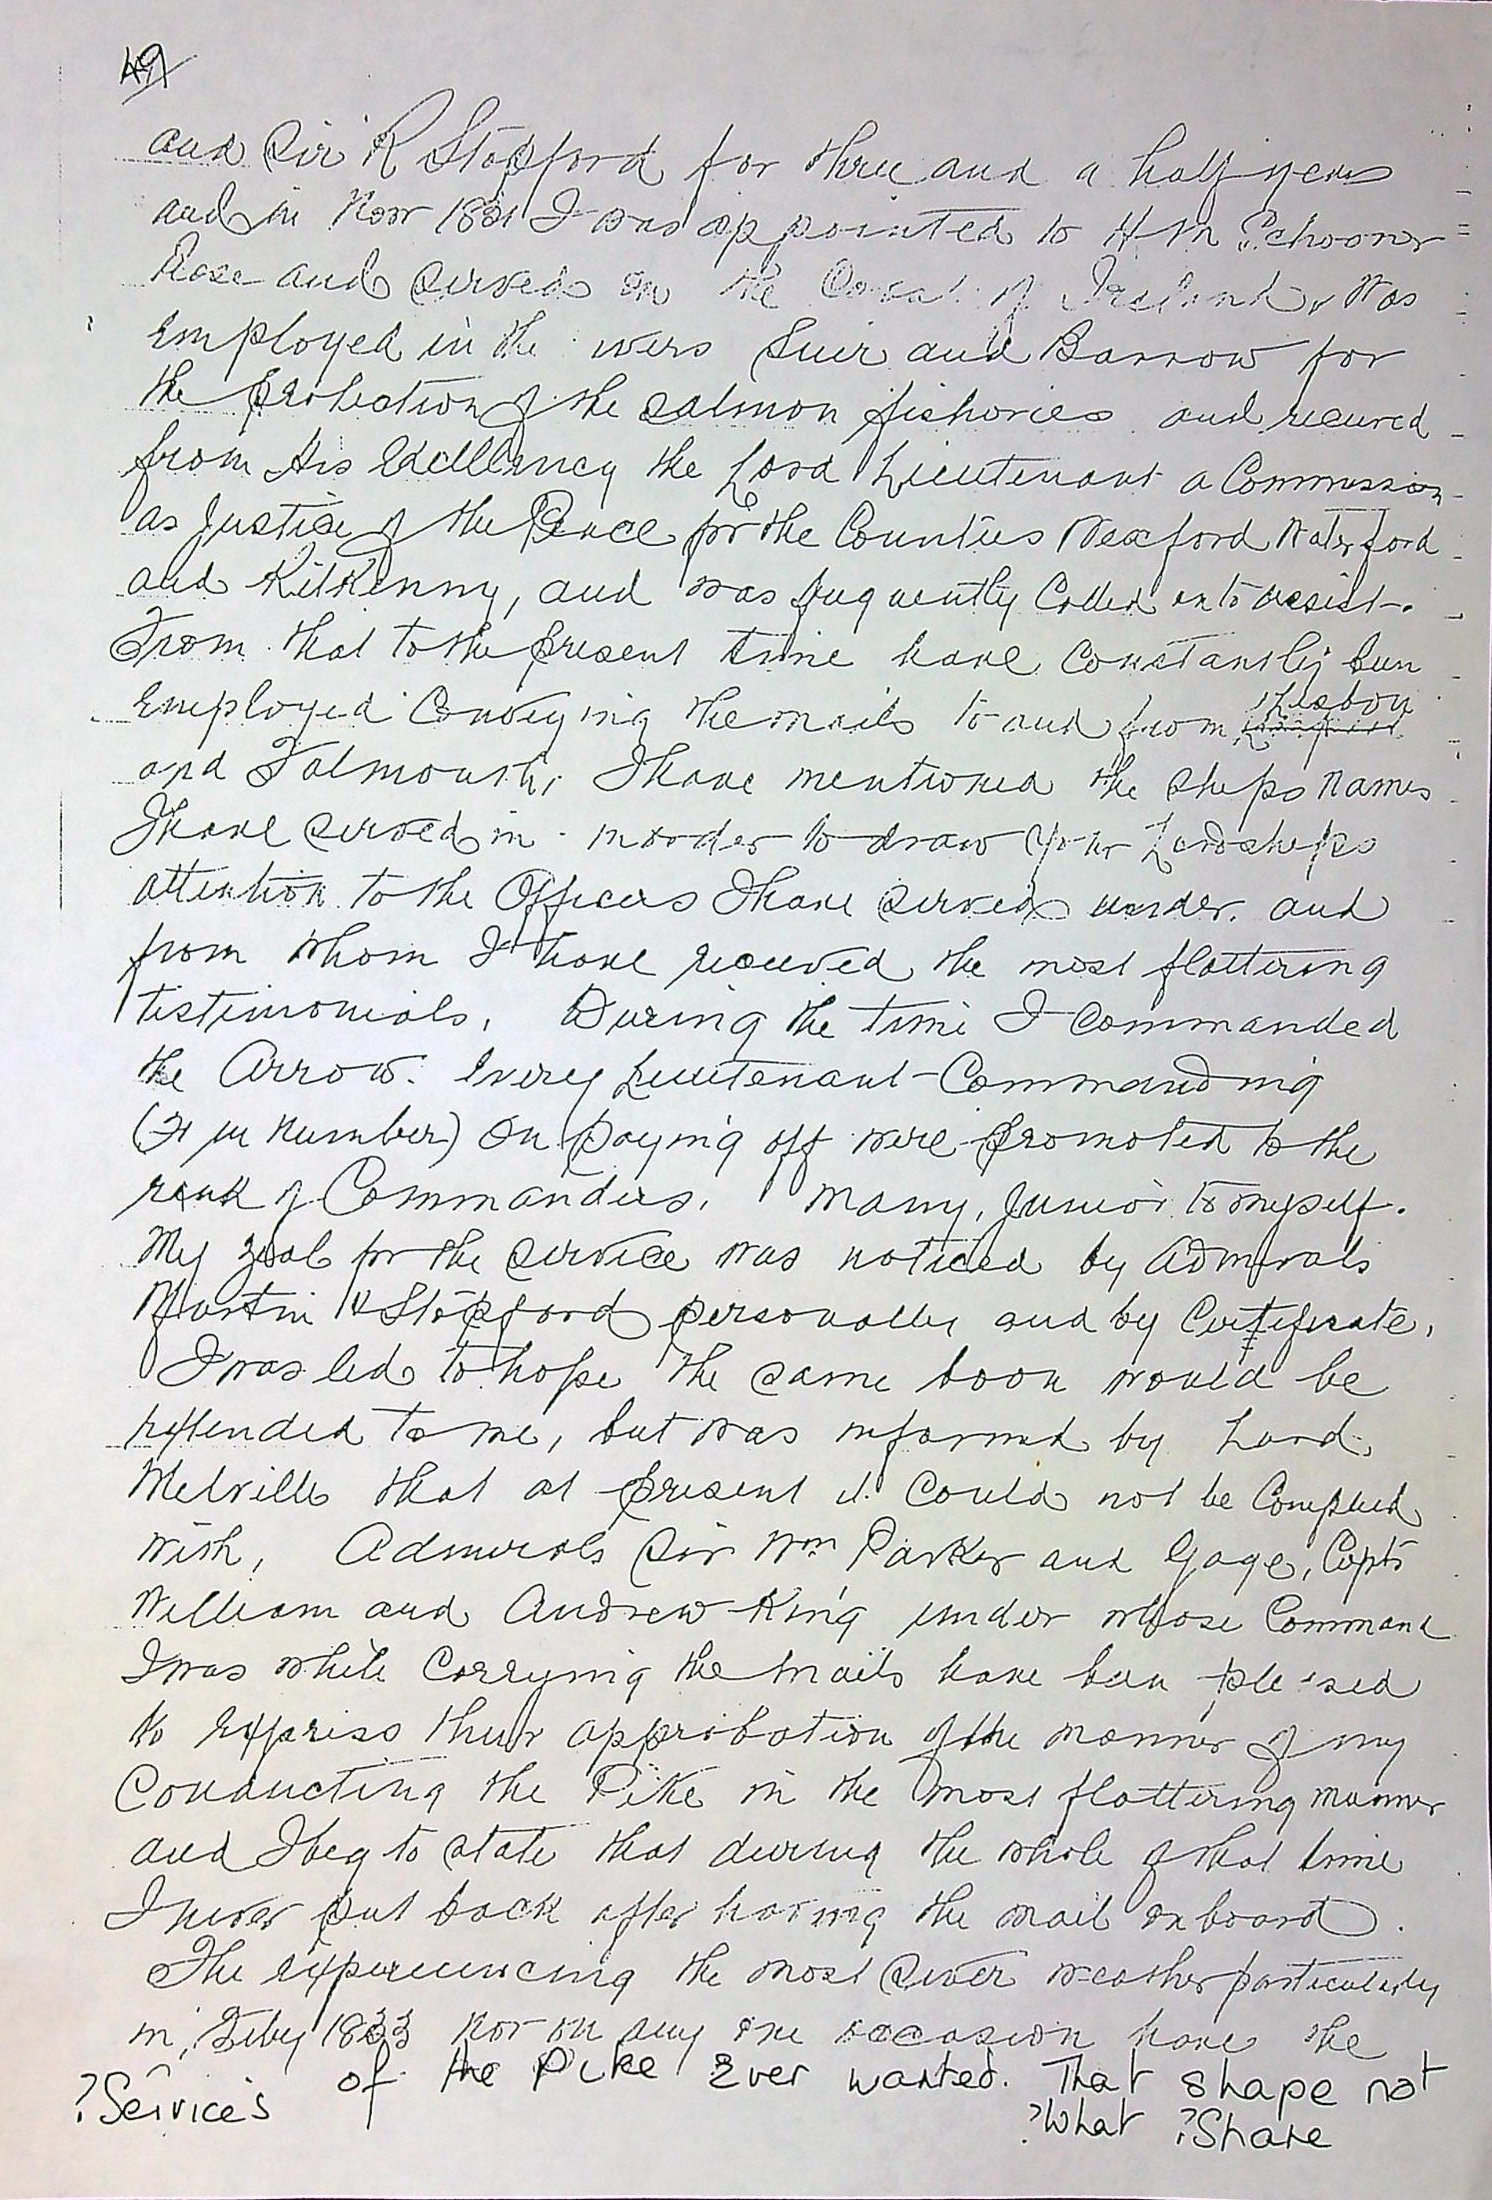 49
and Sir R Stopford for three and a half years
and in Nov 1831 I was appointed to H M Schooner
and served on the Coast of Ireland, Was
employed in the rivers Suir and Barrow for
the protection of the salmon fisheries and received
from His Excellency the Lord Lieutenant a Commission
as Justice of the Peace for the Counties Wexford Waterford
and Kilkenny, and was frequently Called on to assist.
From that to the present time have Constantly been
employed Conveying the mails to and from Lisbon
and Falmouth, I have mentioned the ships names
I have served in in order to draw your Lordships
attention to the Officers I have served under. and
from whom I have received the most flattering
testimonials, During the time I Commanded
the Arrow. Every Lieutenant-Commanding
in number) on paying off were promoted to the
rank of Commanders, Many, Junior to myself.
My zeal for the service was noticed by Admirals
Martin & Stopford personally and by Certificate,
I was led to hope the same boon would be
extended to me, but was informed by Lord
Melville that at present it Could not be Complied
with, Admirals Sir Wm Parker and Gage, Capts
William and Andrew King under whose Command
I was while Carrying the mails have been pleased
to express their approbation of the manner of my
Conducting the Pike in the most flattering manner
and I beg to state that during the whole of that time
I never put back after having the mail on board.
The experiencing the most sever weather particularly
in Feby 1833 nor on any one occasion have the
?Services of the Pike Ever wanted. That shape not
?What ?Share